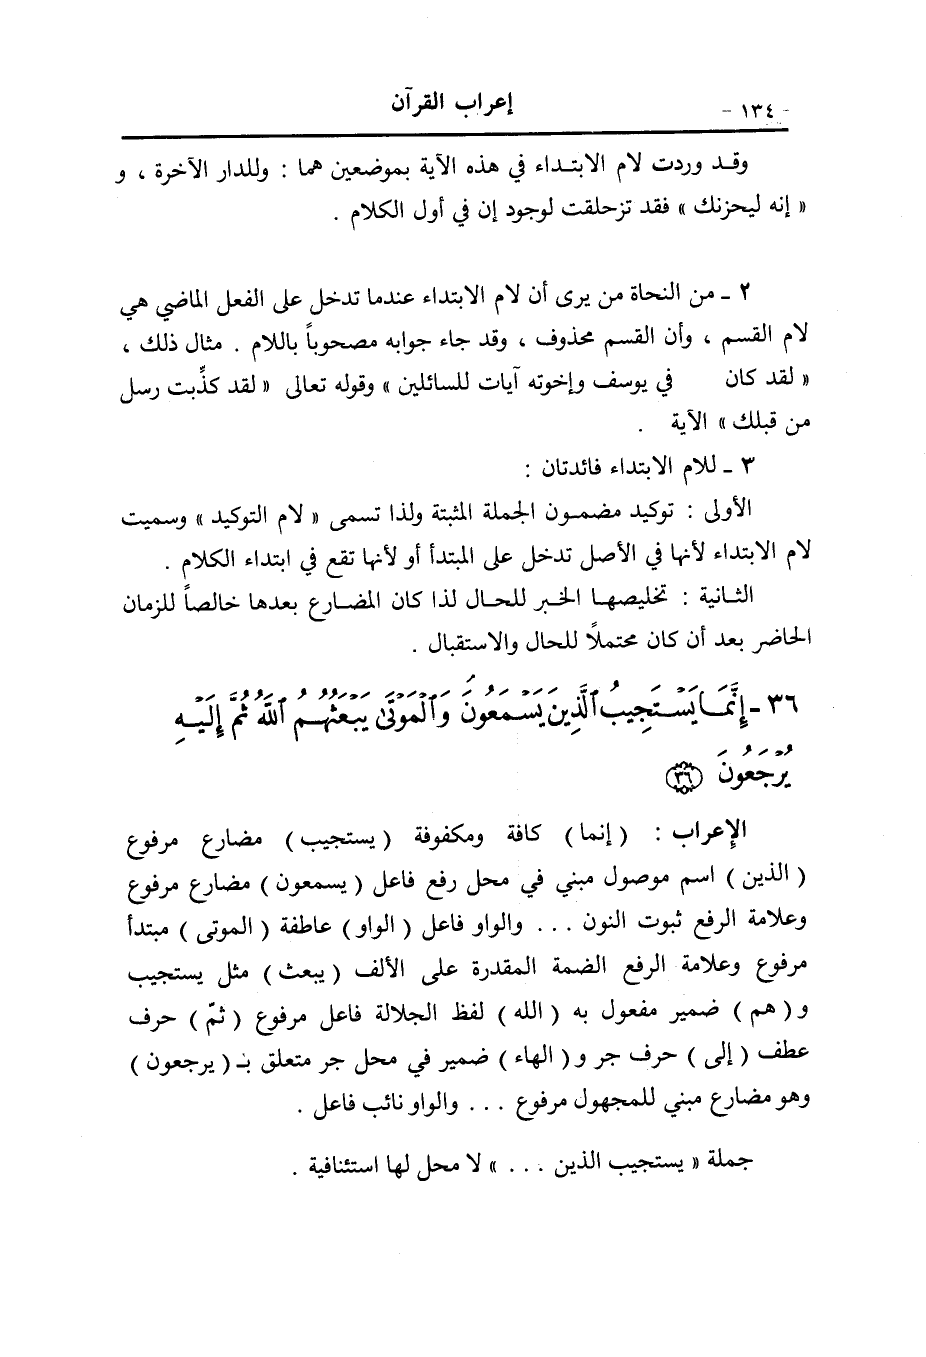 - ١٣٤ - إعراب القرآن
وقد وردت لام الابتداء في هذه الآية بموضعين هما : وللدار الآخرة ، و
« إنه ليحزنك » فقد تزحلقت لوجود إن في أول الكلام .
٢ ـ من النحاة من يرى أن لام الابتداء عندما تدخل على الفعل الماضي هي
لام القسم ، وأن القسم محذوف ، وقد جاء جوابه مصحوباً باللام . مثال ذلك ،
« لقد كان في يوسف وإخوته آيات للسائلين » وقوله تعالى « لقد كذِّبت رسل
من قبلك » الآية .
٣ ـ للام الابتداء فائدتان :
الأولى : توكيد مضمون الجملة المثبتة ولذا تسمى « لام التوكيد » وسميت
لام الابتداء لأنها في الأصل تدخل على المبتدأ أو لأنها تقع في ابتداء الكلام .
الثانية : تخليصها الخبر للحال لذا كان المضارع بعدها خالصاً للزمان
الحاضر بعد أن كان محتملاً للحال والاستقبال .
٣٦ - إِنَّمَا يَسْتَجِيبُ ٱلَّذِينَ يَسْمَعُونَ وَٱلْمَوْتَىٰ يَبْعَثُهُمُ ٱللَّهُ ثُمَّ إِلَيْهِ
يُرْجَعُونَ ﴿٣٦﴾
الإعراب : ( إنما ) كافة ومكفوفة ( يستجيب ) مضارع مرفوع
( الذين ) اسم موصول مبني في محل رفع فاعل ( يسمعون ) مضارع مرفوع
وعلامة الرفع ثبوت النون ... والواو فاعل ( الواو ) عاطفة ( الموتى ) مبتدأ
مرفوع وعلامة الرفع الضمة المقدرة على الألف ( يبعث ) مثل يستجيب
و ( هم ) ضمير مفعول به ( الله ) لفظ الجلالة فاعل مرفوع ( ثمّ ) حرف
عطف ( إلى ) حرف جر و ( الهاء ) ضمير في محل جر متعلق بـ ( يرجعون )
وهو مضارع مبني للمجهول مرفوع ... والواو نائب فاعل .
جملة « يستجيب الذين ... » لا محل لها استئنافية .